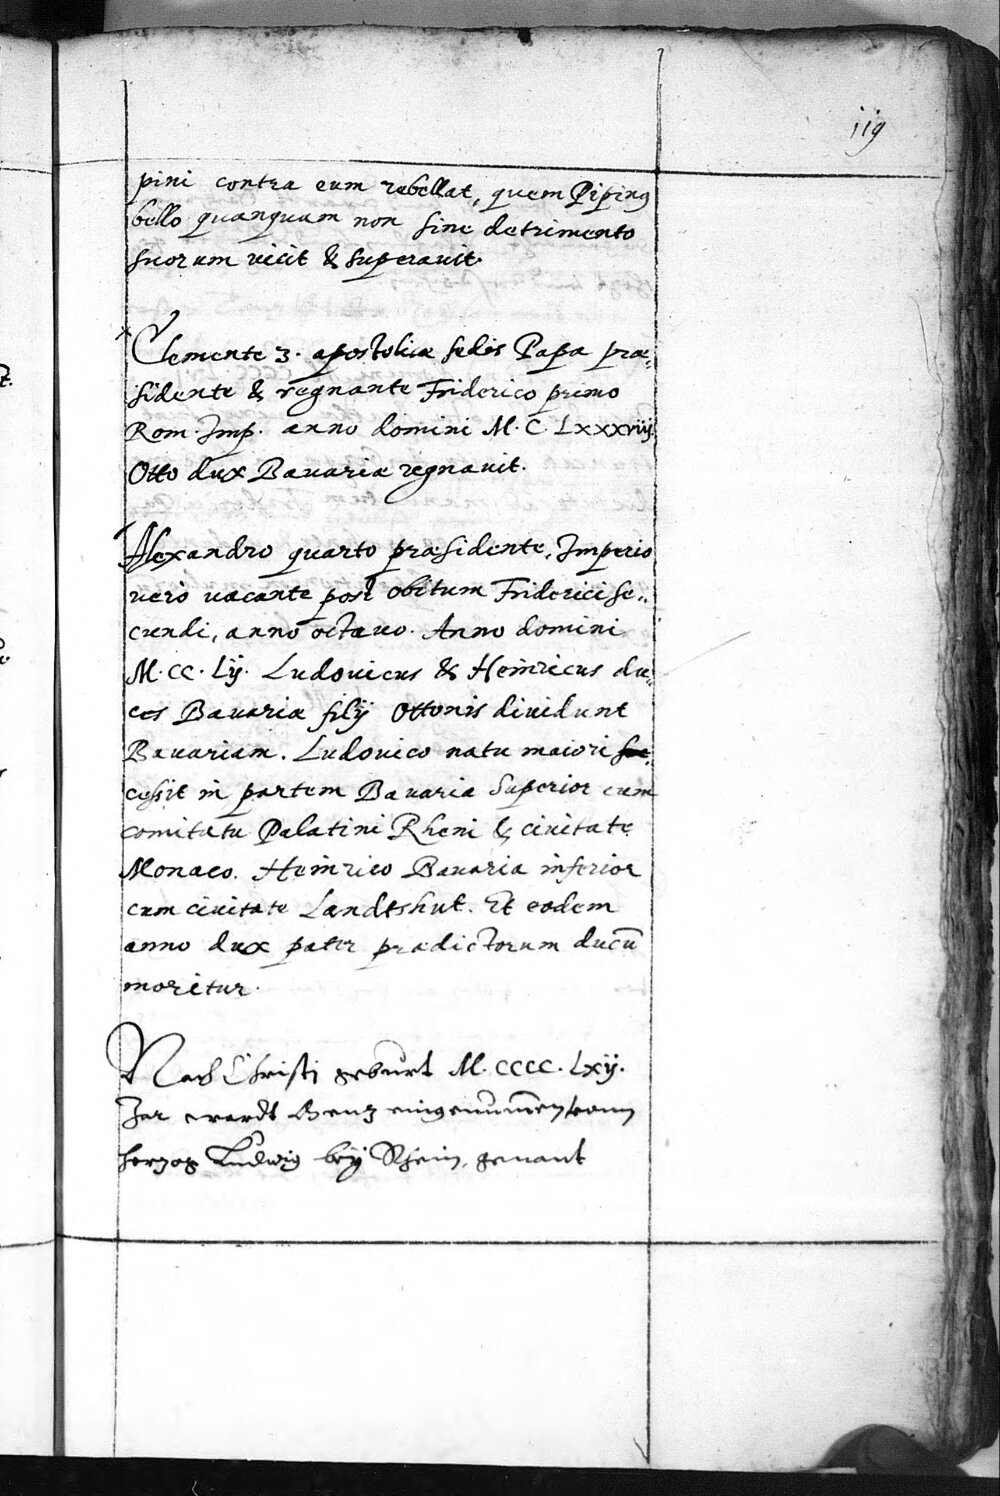 119
pini contra eum rebellat, quem Pipinus
bello quanquam non sine detrimento
suorum vicit & superavit.
Clemente 3. apostolicæ sedis Papa præ-
sidente & regnante Friderico primo
Rom. Imp. anno domini M. C. Lxxxviij
Otto dux Bavariæ regnavit.
Alexandro quarto præsidente, Imperio
vero vacante post obitum Friderici se-
cundi, anno octavo. Anno domini
M. CC. Lij. Ludovicus & Heinricus du-
ces Bavariæ filij Ottonis dividunt
Bavariam. Ludovico natu maiori suc-
cessit in partem Bavaria Superior cum
comitatu Palatini Rheni & civitate
Monaco. Heinrico Bavaria inferior
cum civitate Landtshut. Et eodem
anno dux pater prædictorum ducū
moritur.
Nach Christi geburt M. CCCC. Lxij.
Jar wardt eingenummen vonn
hertzog Ludwig bey Rhein, genant